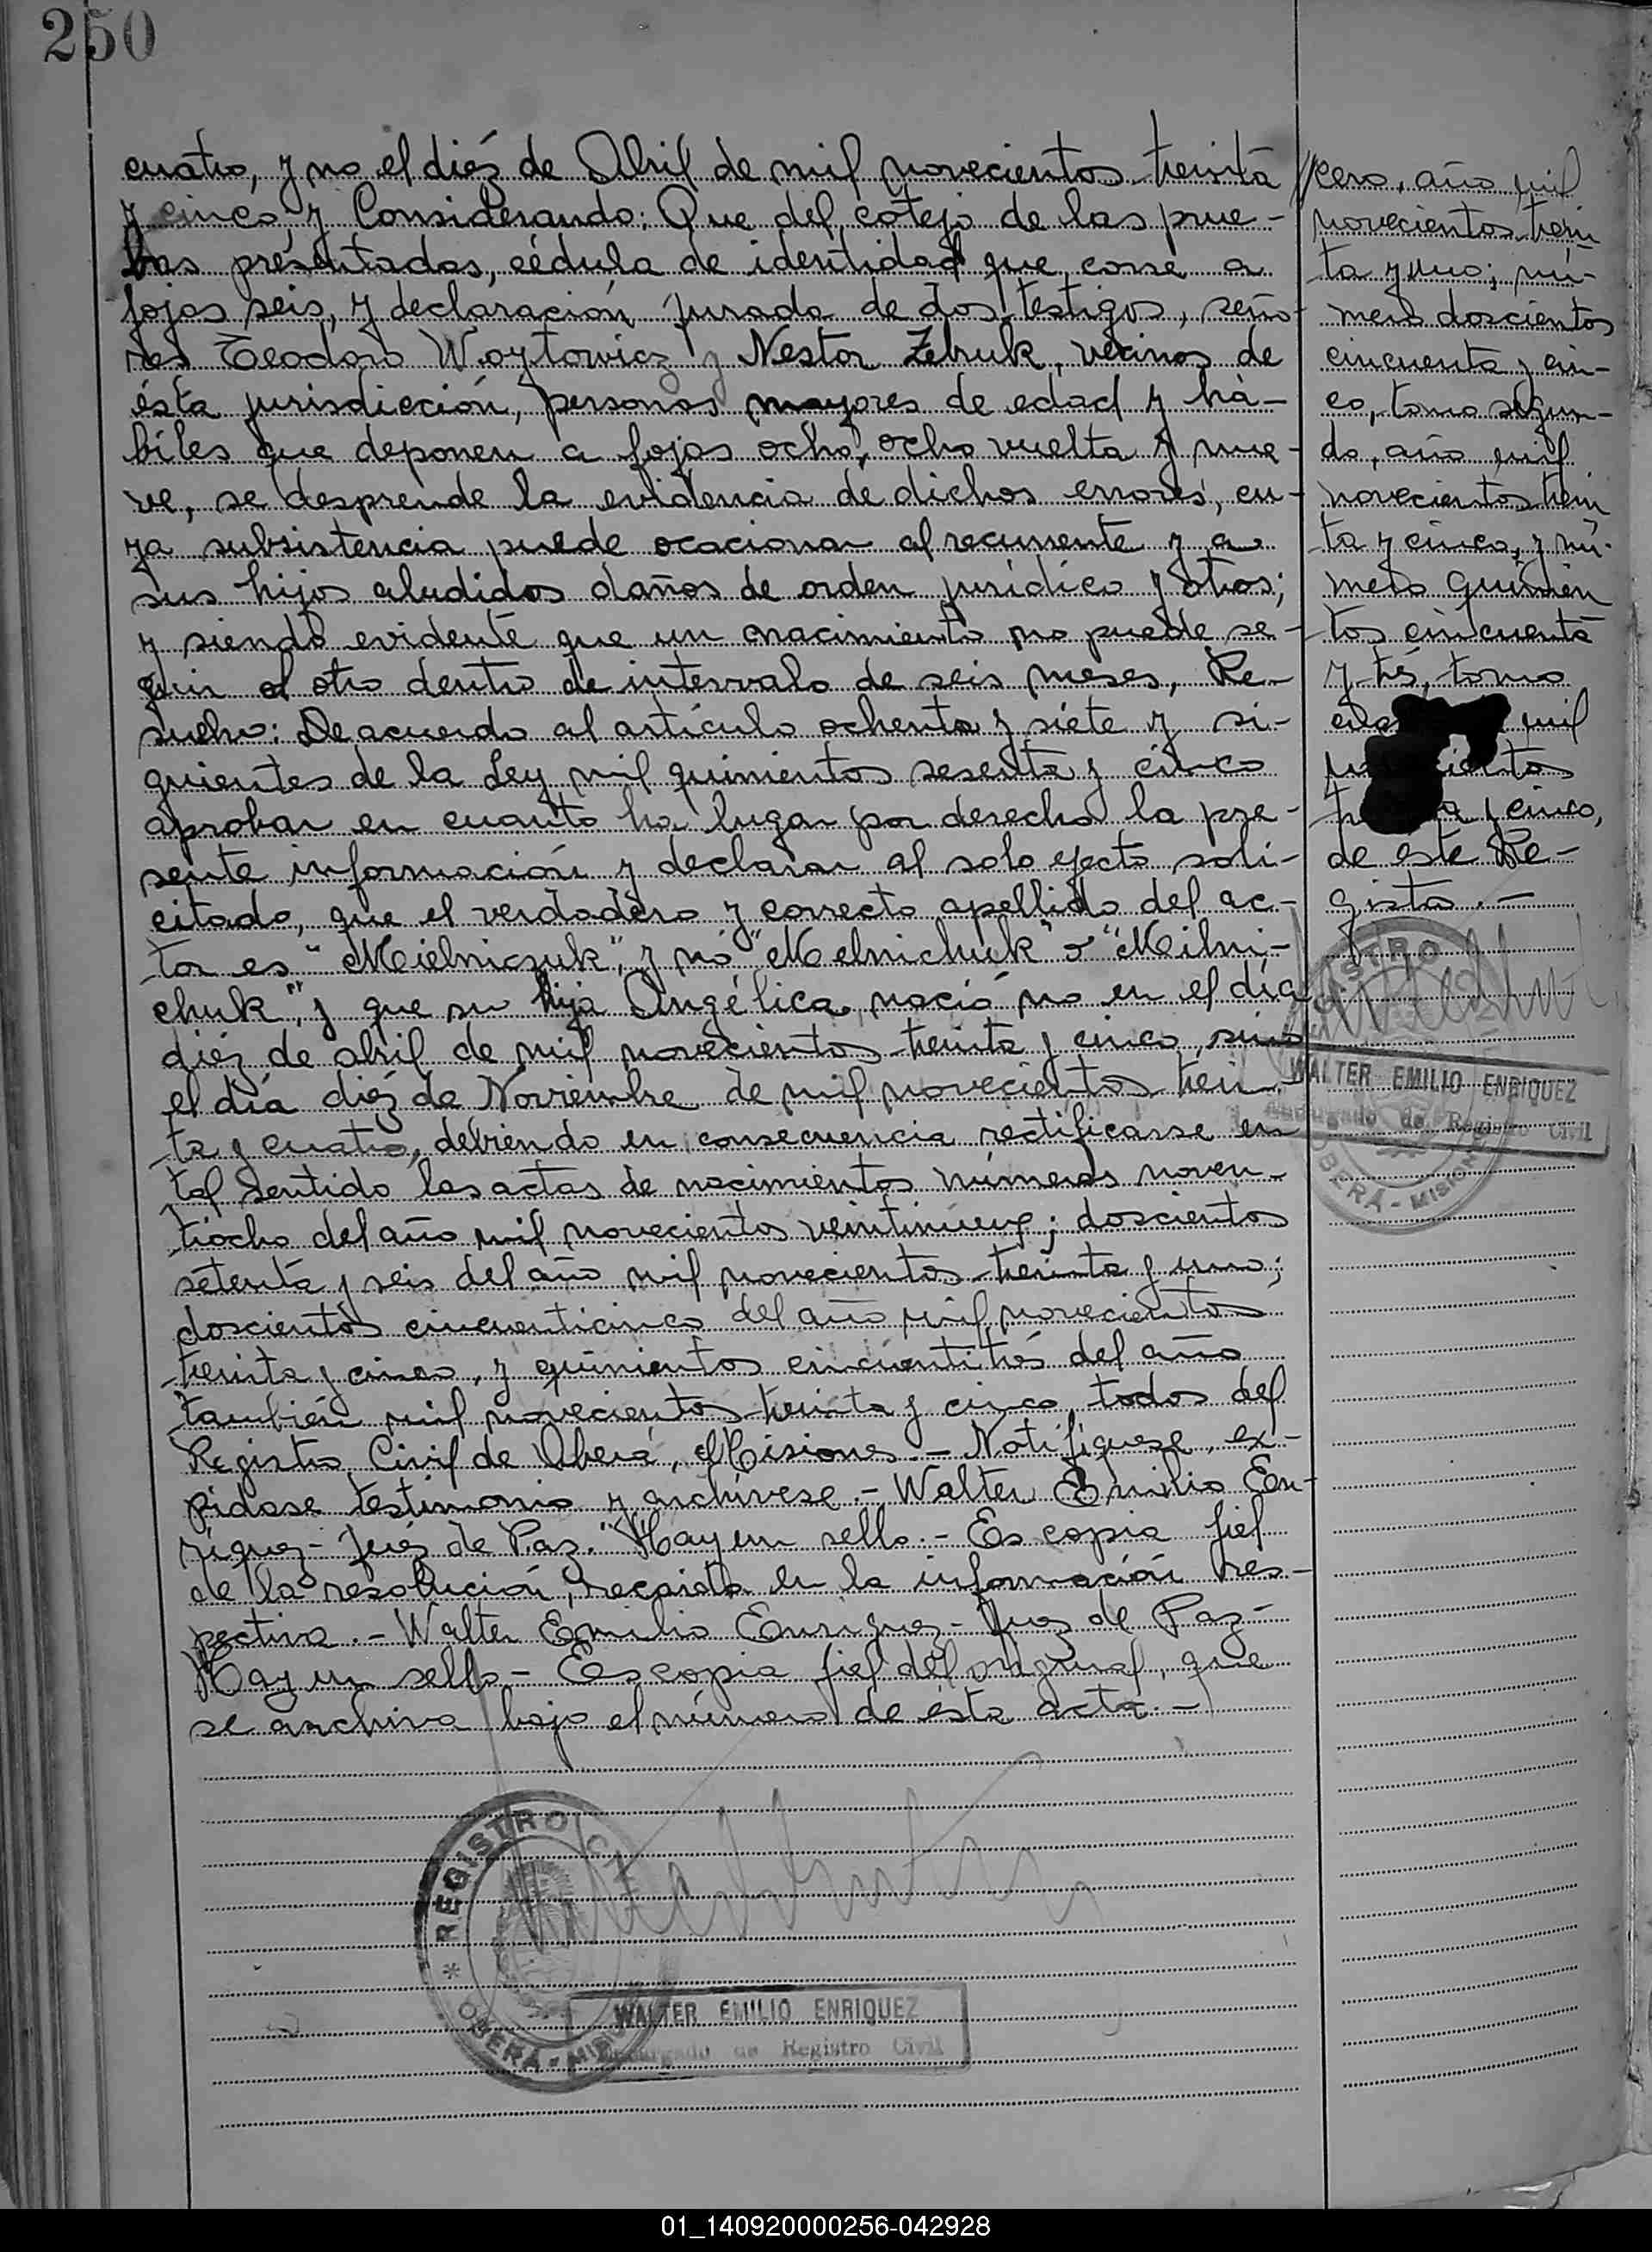 250
cuatro, y no el diéz de Abril de mil novecientos treinta
y cinco, y Considerando: Que del cotejo de las prue-
bas presentadas, cédula de identidad que corre a
fojas seis, y declaración jurada de dos testigos, seño-
res Teodoro Woytowicz y Nestor Zebruk, vecinos de
ésta jurisdicción, personas mayores de edad y há-
biles que deponen a fojas ocho, ocho vuelta y nue-
ve, se desprende la evidencia de dichos errores, cu-
ya subsistencia puede ocacionar al recurrente y a
sus hijos aludidos daños de orden jurídico y otros;
y siendo evidente que un nacimiento no puede se-
guir al otro dentro de intervalo de seis meses, Re-
suelvo: De acuerdo al artículo ochenta y siete y si-
guientes de la Ley mil quinientos sesenta y cinco
aprobar en cuanto ha lugar por derecho la pre-
sente información y declarar al solo efecto soli-
citado, que el verdadero y correcto apellido del ac-
tor es "Mielniczuk", y nó "Melnichuk" o "Milni-
chuk", y que su hija Angélica nació no en el día
diéz de abril de mil novecientos treinta y cinco, sino
el día diéz de Noviembre de mil novecientos trein-
ta y cuatro, debiendo en consecuencia rectificarse en
tal sentido las actas de nacimientos números noven-
tiocho del año mil novecientos veintinueve; doscientos
setenta y seis del año mil novecientos treinta y uno;
doscientos cincuenticinco del año mil novecientos
treinta y cinco, y quinientos cincuentitrés del año
también mil novecientos treinta y cinco, todos del
Registro Civil de Oberá, Misiones.- Notifíquese, ex-
pídase testimonio y archívese.- Walter Emilio En-
ríquez- Juéz de Paz." Hay un sello.- Es copia fiel
de la resolución, recaída en la información res-
pectiva.- Walter Emilio Enriquez- Juez de Paz-
Hay un sello- Es copia fiel del original, que
se archiva bajo el número de esta acta.-
//cero, año mil
novecientos trein
ta y uno; nú-
mero doscientos
cincuenta y cin-
co, tomo segun-
do, año mil
novecientos trein
ta y cinco, y nú-
mero quinien
tos cincuenta
y trés, tomo
mil
y cinco,
de este Re-
gistro.-
WALTER EMILIO ENRIQUEZ
Encargado de Registro Civil
OBERÁ - MISIONES
REGISTRO CIVIL
OBERÁ - MISIONES
WALTER EMILIO ENRIQUEZ
Encargado de Registro Civil
01_140920000256-042928